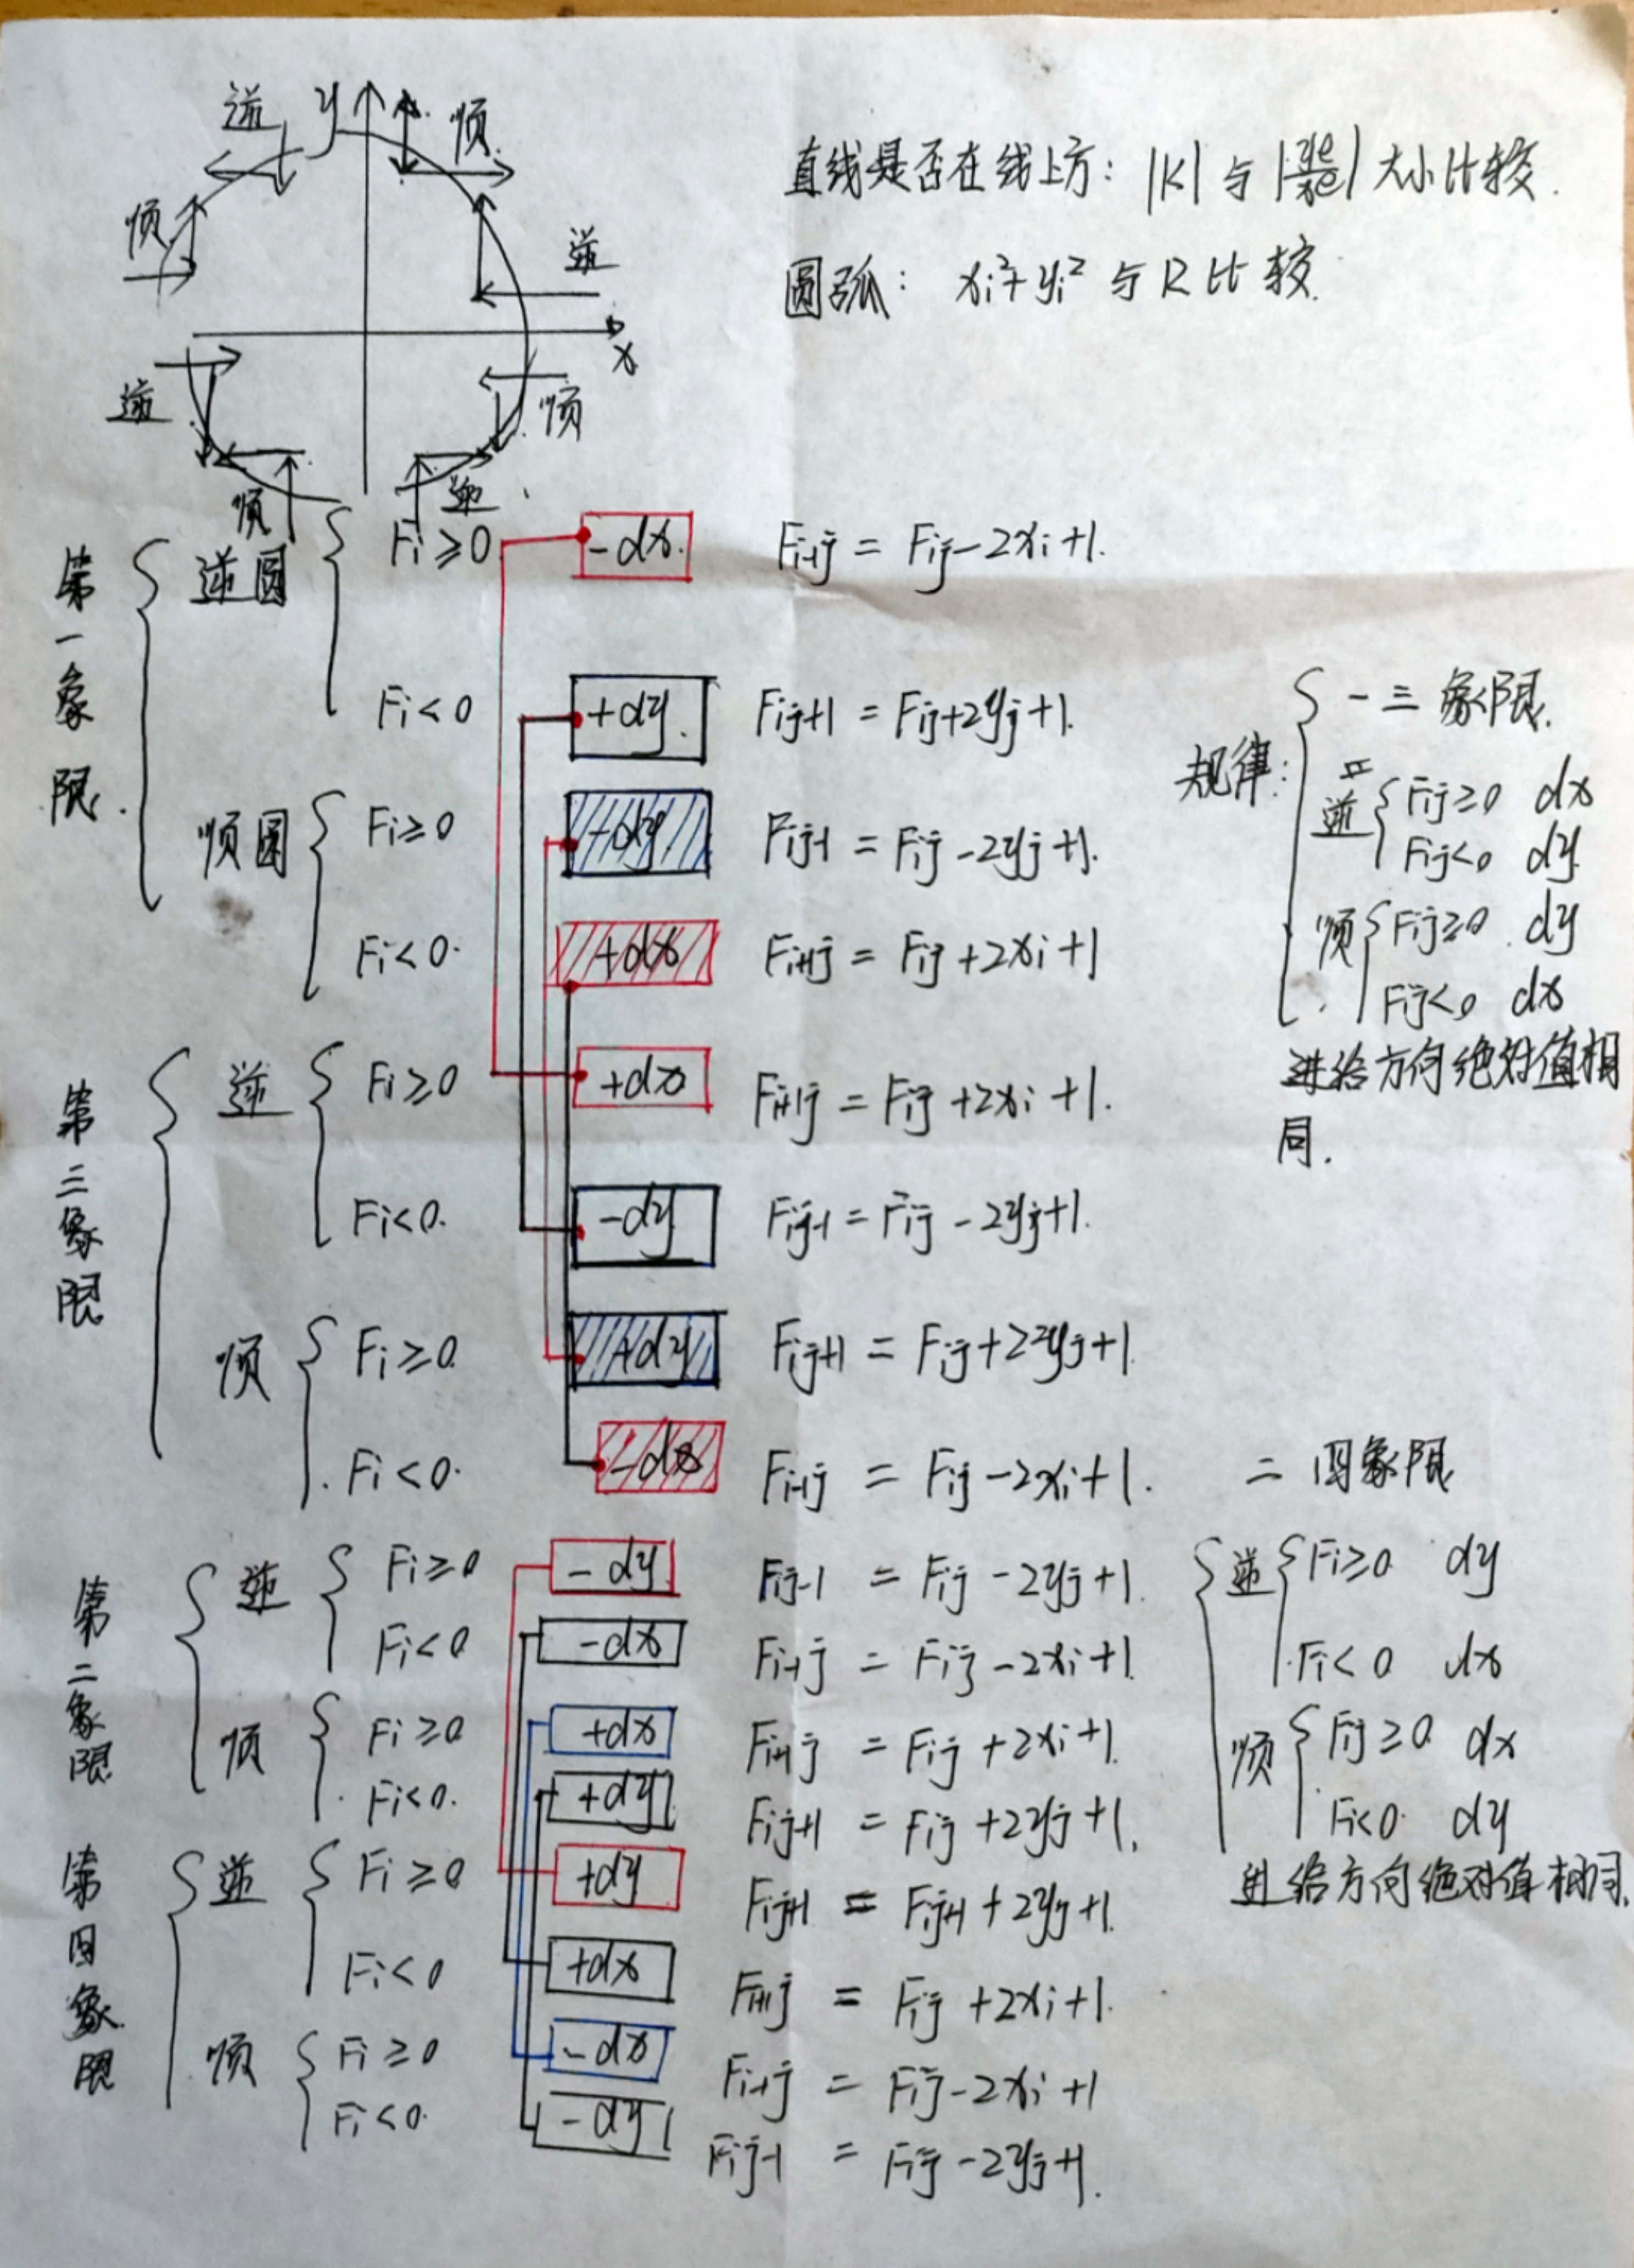 逆 y 顺
顺 逆
x
逆 顺
顺 逆
直线是否在线上方: |K| 与 |ye/xe| 大小比较.
圆弧: xi²+yi² 与 R 比较.
第一象限.
逆圆 Fi≥0 -dx. Fi-1j = Fij-2xi+1.
Fi<0 +dy. Fij+1 = Fij+2yj+1.
顺圆 Fi≥0 -dy Fij-1 = Fij-2yj+1.
Fi<0. +dx Fi+1j = Fij+2xi+1
第三象限
逆 Fi≥0 +dx Fi+1j = Fij+2xi+1.
Fi<0. -dy Fij-1 = Fij-2yj+1.
顺 Fi≥0. +dy Fij+1 = Fij+2yj+1.
Fi<0. -dx Fi-1j = Fij-2xi+1.
规律:
一三象限.
逆 Fij≥0 dx
Fij<0 dy.
顺 Fij≥0. dy
Fij<0 dx
进给方向绝对值相
同.
第二象限
逆 Fi≥0 -dy Fij-1 = Fij-2yj+1.
Fi<0 -dx Fi-1j = Fij-2xi+1.
顺 Fi≥0 +dx Fi+1j = Fij+2xi+1.
Fi<0. +dy Fij+1 = Fij+2yj+1.
第四象限
逆 Fi≥0 +dy Fij+1 = Fij+1+2yj+1.
Fi<0 +dx Fi+1j = Fij+2xi+1.
顺 Fi≥0 -dx Fi-1j = Fij-2xi+1
Fi<0. -dy Fij-1 = Fij-2yj+1.
二四象限
逆 Fi≥0 dy
Fi<0 dx
顺 Fij≥0 dx
Fi<0. dy
进给方向绝对值相同.